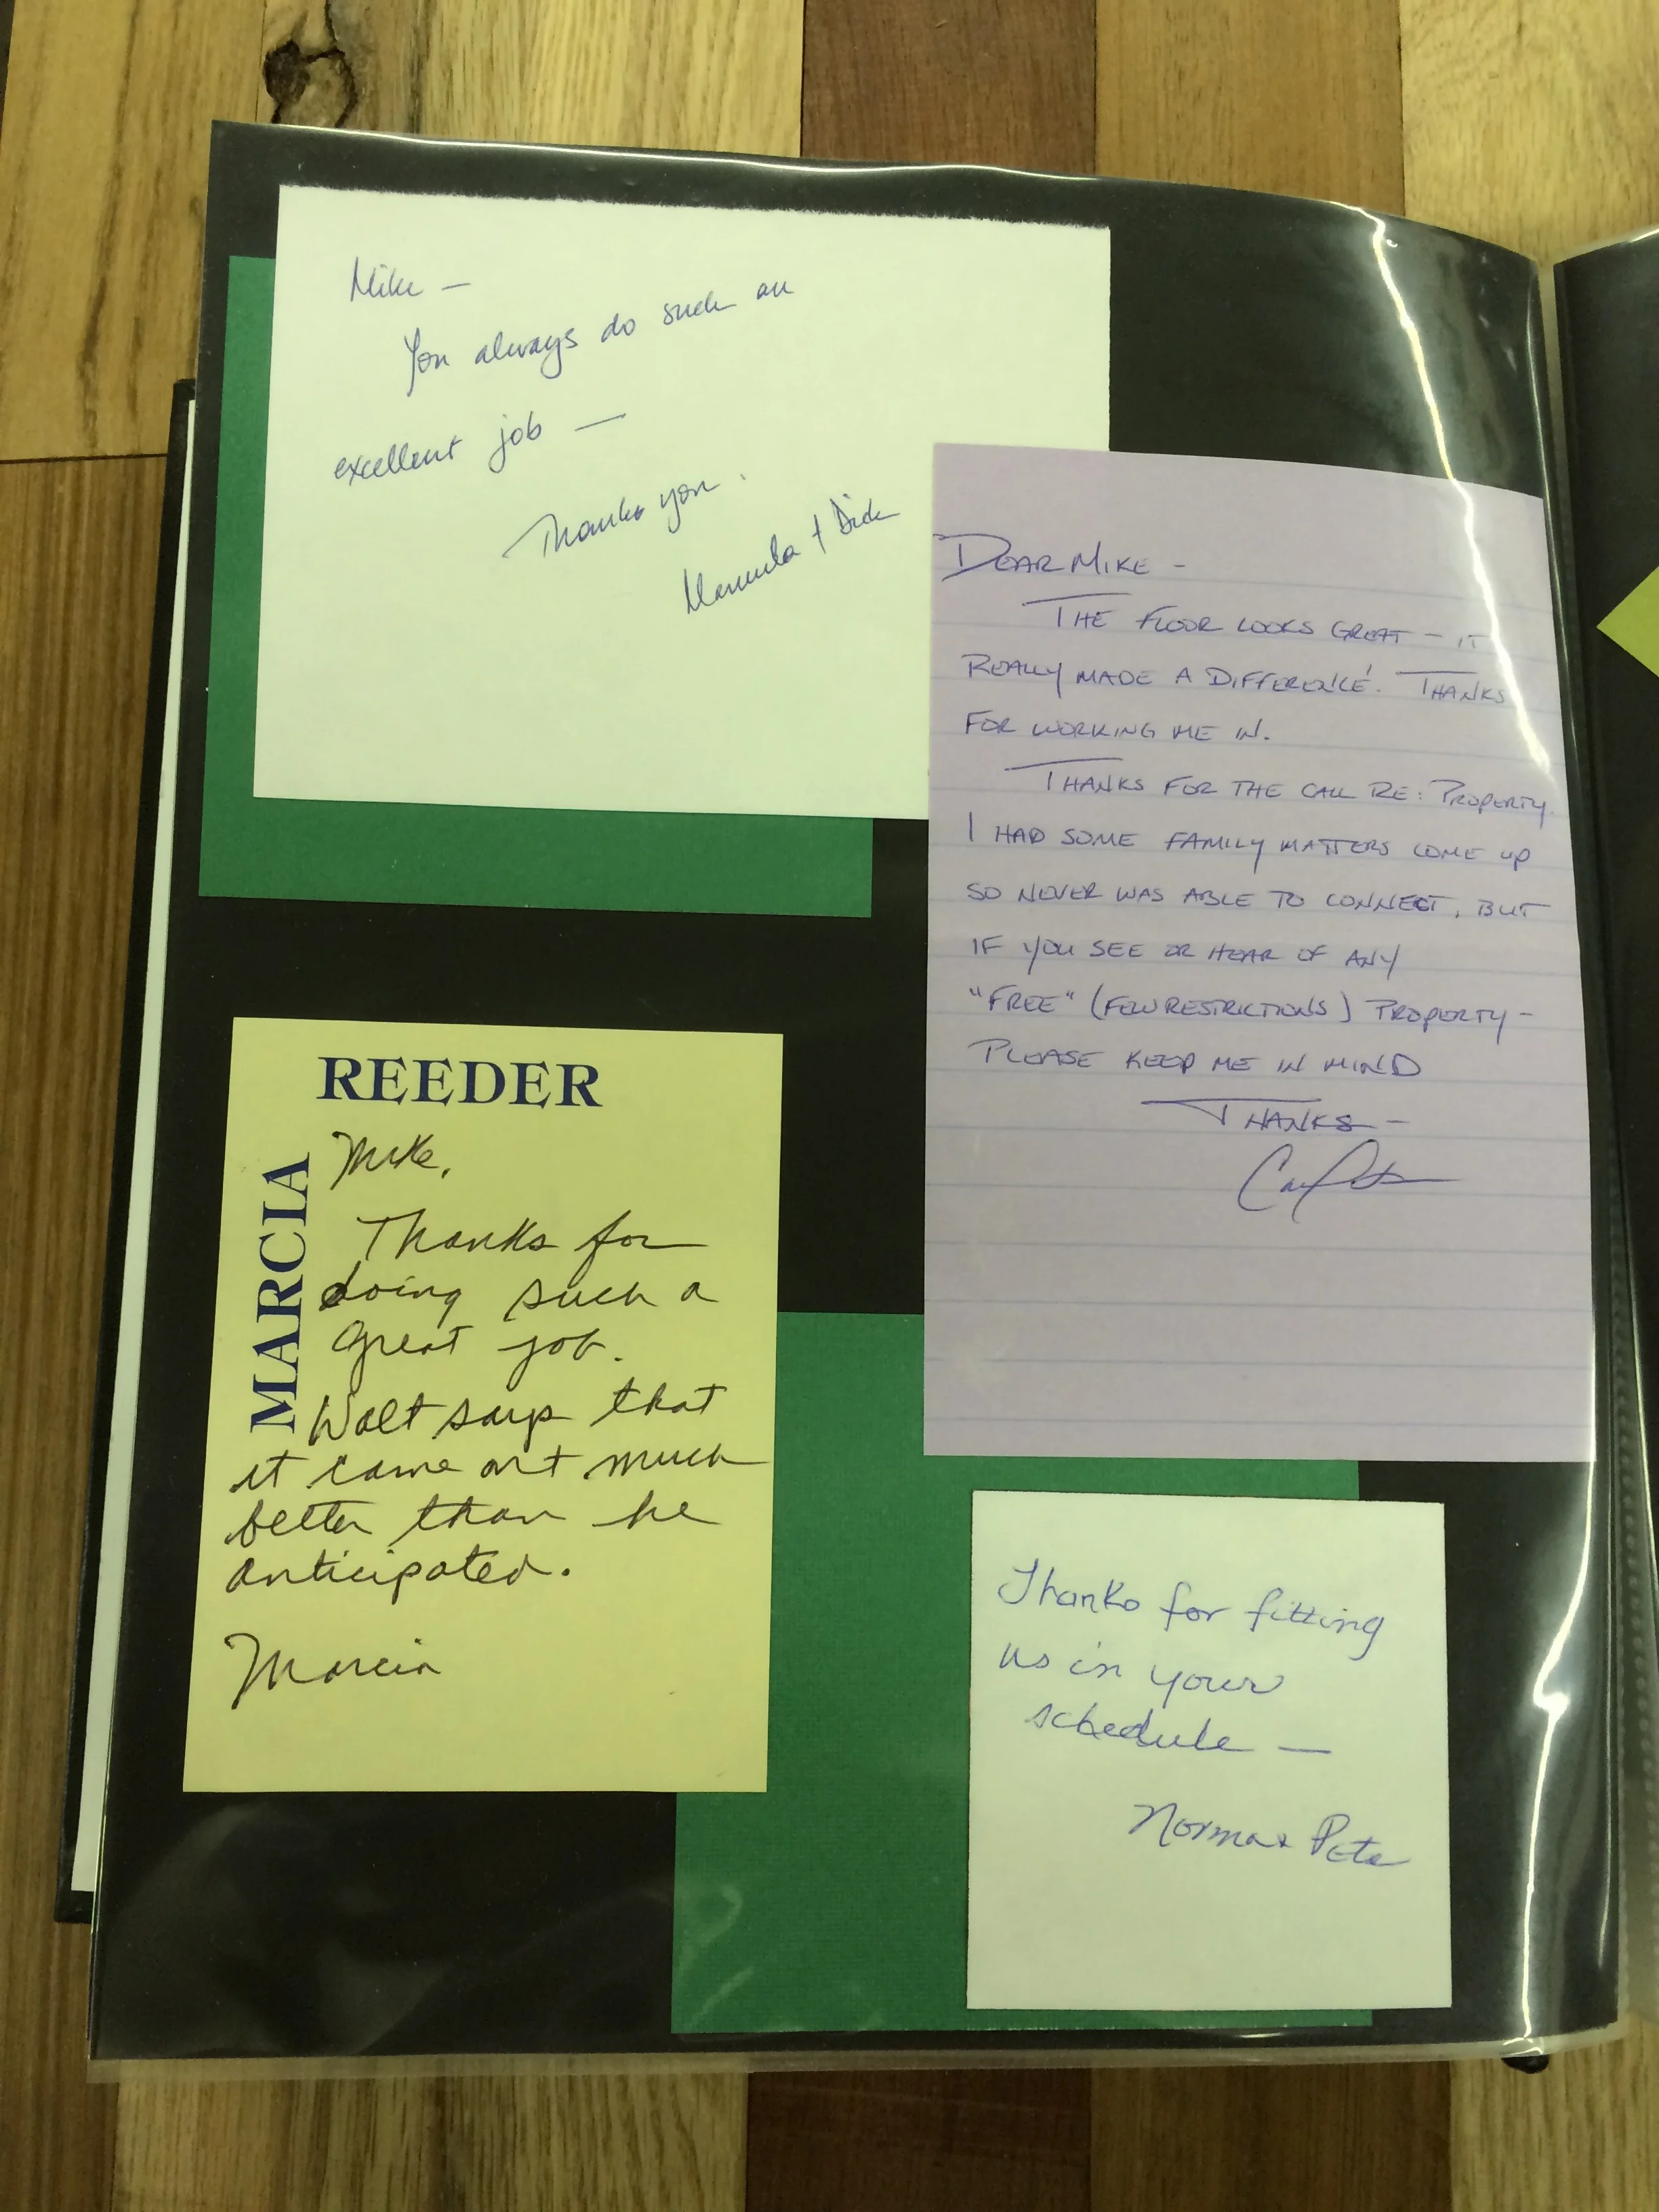 Mike —
You always do such an
excellent job —
Thanks you.
+ Dick
DEAR MIKE -
THE FLOOR LOOKS GREAT - IT
REALLY MADE A DIFFERENCE! THANKS
FOR WORKING ME IN.
THANKS FOR THE CALL RE: PROPERTY.
I HAD SOME FAMILY MATTERS COME UP
SO NEVER WAS ABLE TO CONNECT, BUT
IF YOU SEE OR HEAR OF ANY
"FREE" (FEW RESTRICTIONS) PROPERTY -
PLEASE KEEP ME IN MIND
THANKS -
REEDER
MARCIA
Mike,
Thanks for
doing such a
great job.
Walt says that
it came out much
better than he
anticipated.
Marcia
Thanks for fitting
us in your
schedule —
Norma + Pete